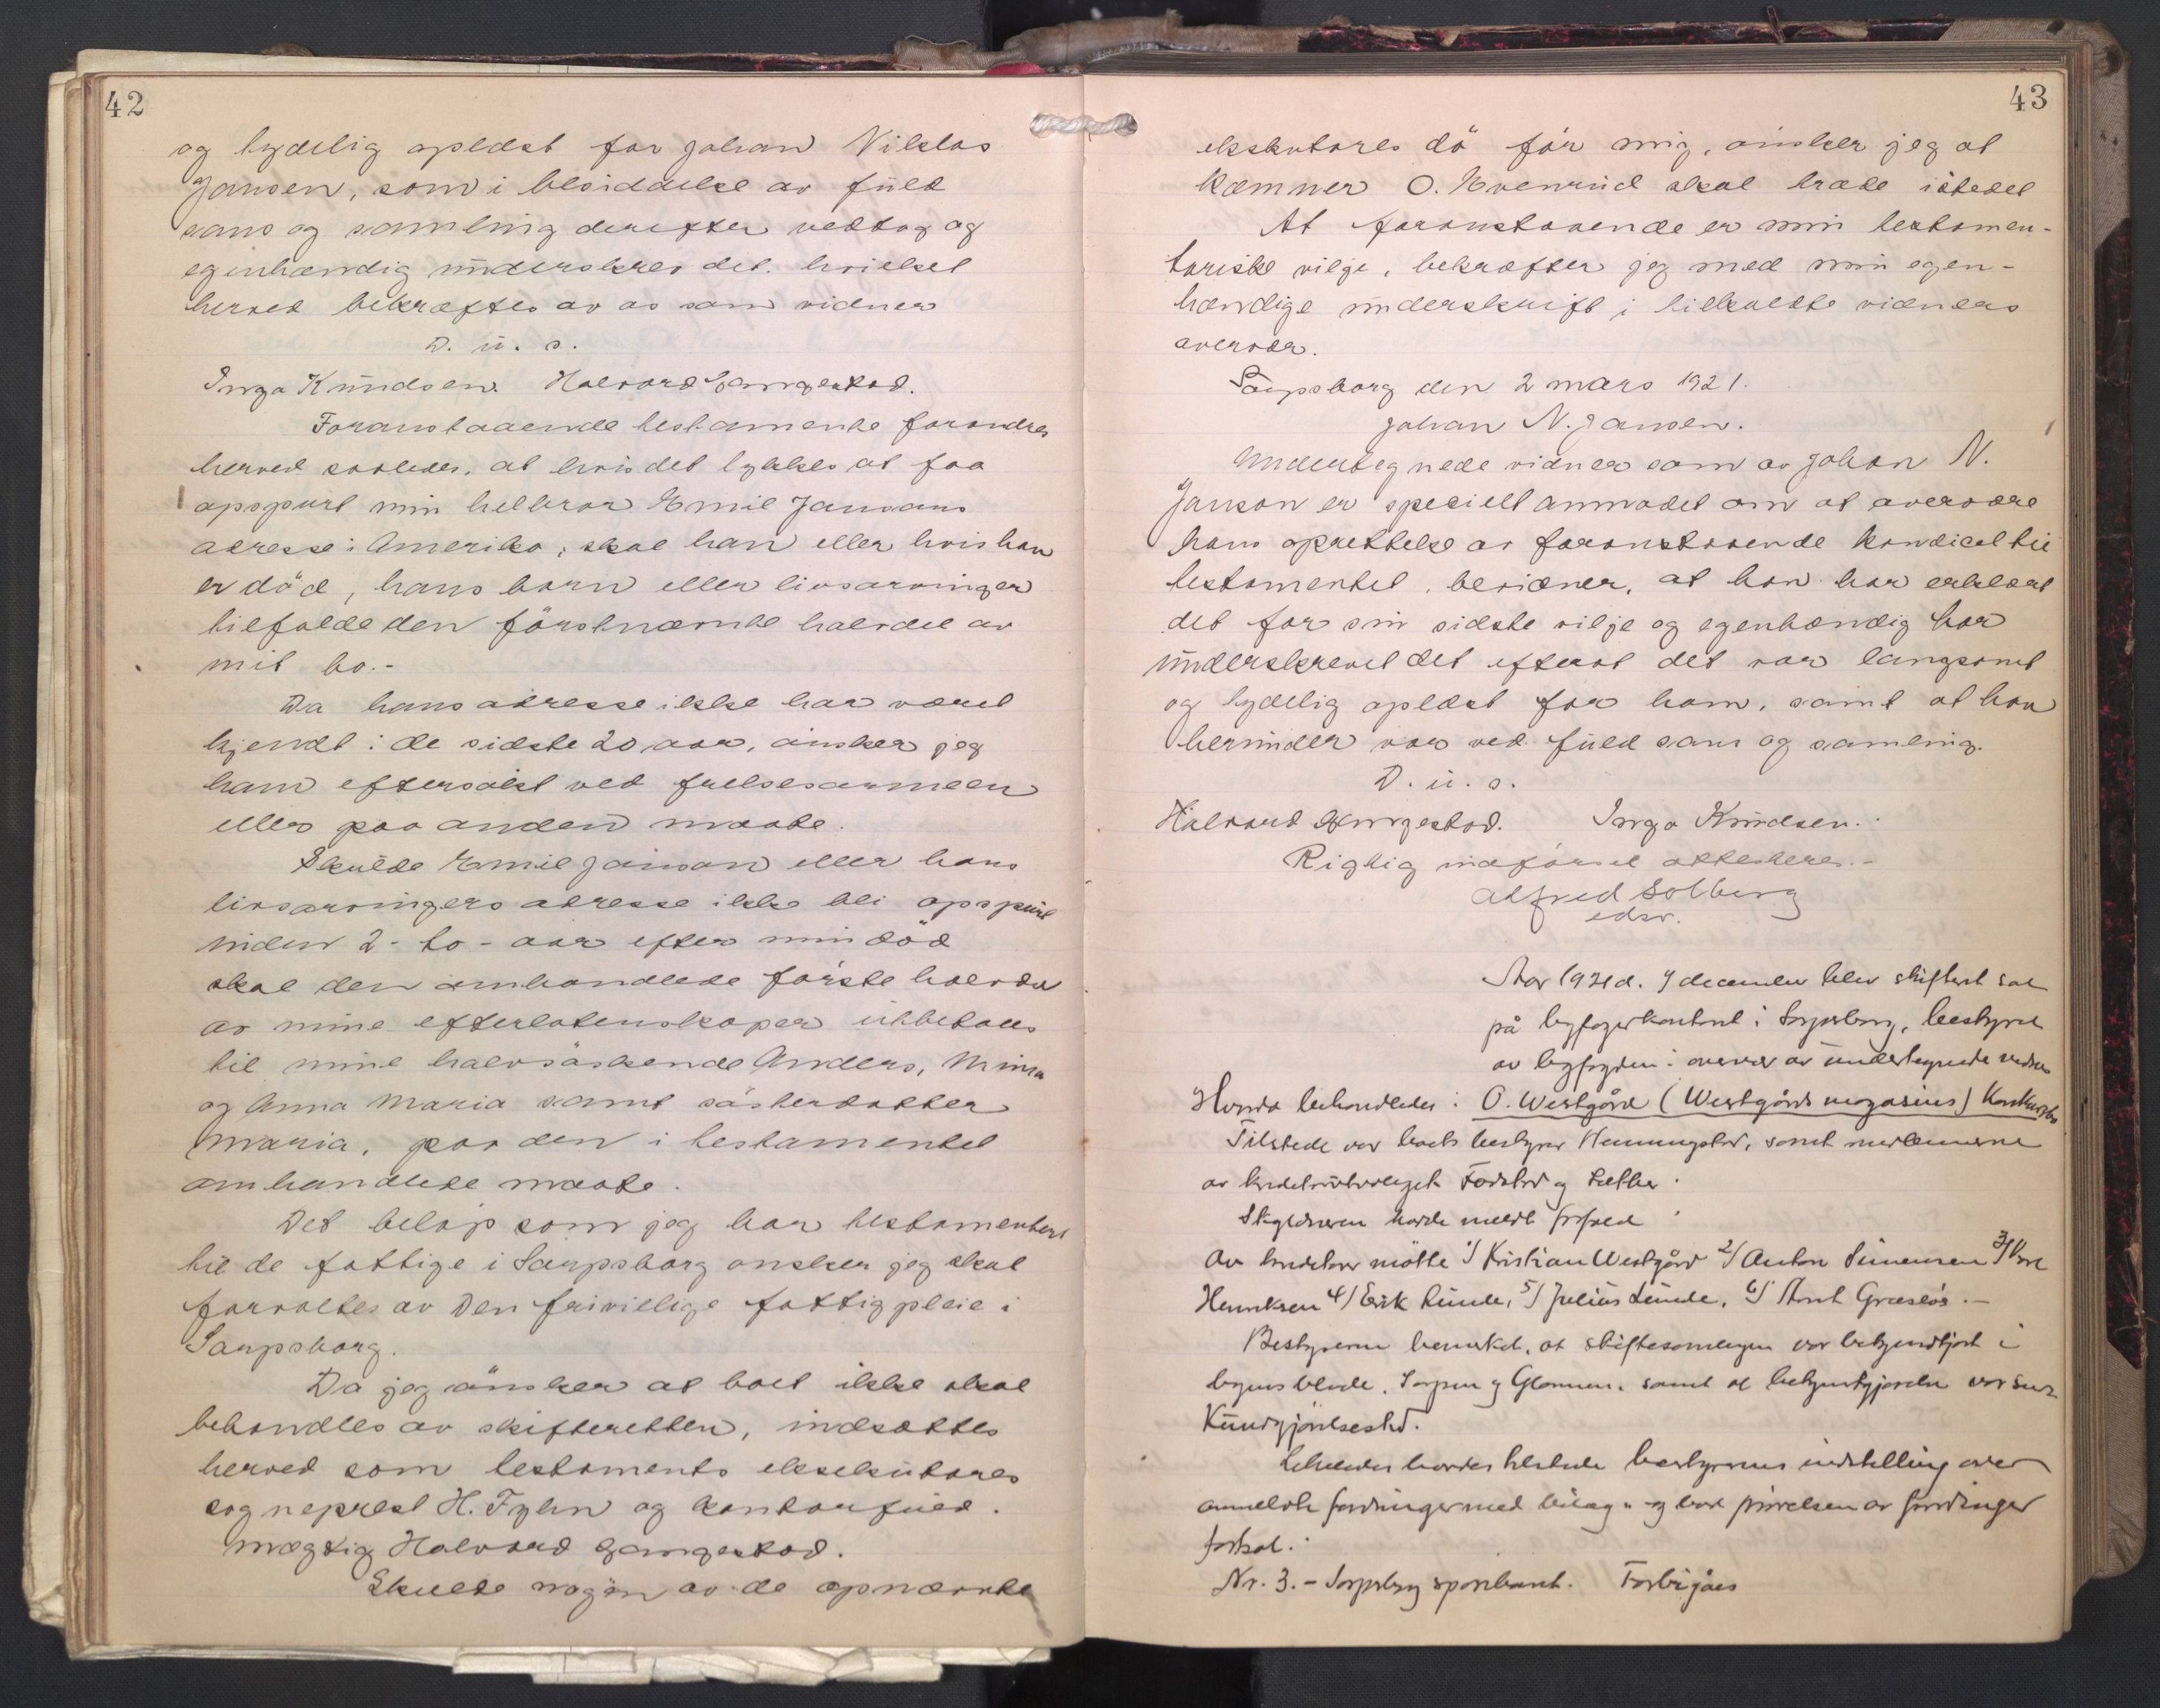 42
og tydelig oplæst for Johan Niklas
Jansen, som i besiddelse av fuld
sans og samling derefter vedtog og
egenhændig underskrev det. hvilket
herved bekræftes av os som vidner
D. u. s.
Inga Knudsen. Halvard Gangestad.
Foranstaaende testamente forandres
herved saaledes, at hvis det lykkes at faa
opspurt min helbror Emil Jansans
adresse i Amerika, skal han eller hvis han
er död, hans barn eller livsarvinger
tilfalde den förstnævnte halvdel av
mit bo.-
Da hans adresse ikke har været
kjendt i de sidste 20 aar, önsker jeg
ham eftersökt ved frelsesarmeen
eller paa anden maate.
Skulde Emil Janson eller hans
livsarvingers adresse ikke bli opspurt
inden 2- to - aar efter min död
skal den omhandlede förste halvdel
av mine efterlatenskaper utbetales
til mine halvsöskende Anders, Mina
og Anna Maria samt sösterdatter
Maria, paa den i testamentet
omhandlede maate.
Det belöp som jeg har testamentert
til de fattige i Sarpsborg önsker jeg skal
forvaltes av Den frivillige fattigpleie i
Sarpsborg.
Da jeg önsker at boet ikke skal
behandles av skifteretten, indsættes
herved som testaments eksekutores
sogneprest H. Fyhn og kontorfuld.
mægtig Halvard Gangestad.
Skulde nogen av de opnævnte
43
eksekutores dö för mig, önsker jeg at
kæmner O. Hvenrud skal træde istedet
At foranstaaende er min testamen-
tariske vilje, bekræfter jeg med min egen-
hændige underskrift i tilkaldte vidners
overvær.
Sarpsborg den 2 mars 1921.
Johan N. Jansen.
Undertegnede vidner som av Johan N.
Janson er specielt anmodet om at overvære
hans oprettelse av foranstaaende kondicel til
testamentet, bevidner, at han har erklært
det for sin sidste vilje og egenhændig har
underskrevet det efterat det var langsomt
og tydelig oplæst for ham, samt at han
herunder var ved fuld sans og samling.
D. u. s.
Halvard Gangestad. Inga Knudsen.
Rigtig indförsel attesteres.-
Alfred Solberg
edsv.
Aar 1921 d. 9 december blev skifteret sat
på byfogedkontoret i Sarpsborg, bestyret
av byfogden i overvær av undertegnede vidner
Hvorda behandledes: O. Westgård (Westgårds magasins) Konkursbo
Tilstede var boets bestyrer Henningstad, samt medlemmerne
av kreditorutvalget Fodstad og Sæther.
Skyldneren havde meldt forfald
Av kreditorer mötte 1/ Kristian Westgård 2/ Anton Simensen 3/
Henriksen 4/ Erik Lunde, 5/ Julius Lunde, 6/ Arnt Græslös.-
Bestyreren bemerket, at skiftesamlingen var bekjendtgjort i
byens blade, Sarpen og Glommen, samt at bekjendtgjörelse var
Kundgjörelsestid.
Likeledes havdes tilstede bestyrerens indstilling over
anmeldte fordringer med bilag og blev prövelsen av fordringer
foretat.
Nr. 3.- Sarpsborg sparebank. Forbigåes